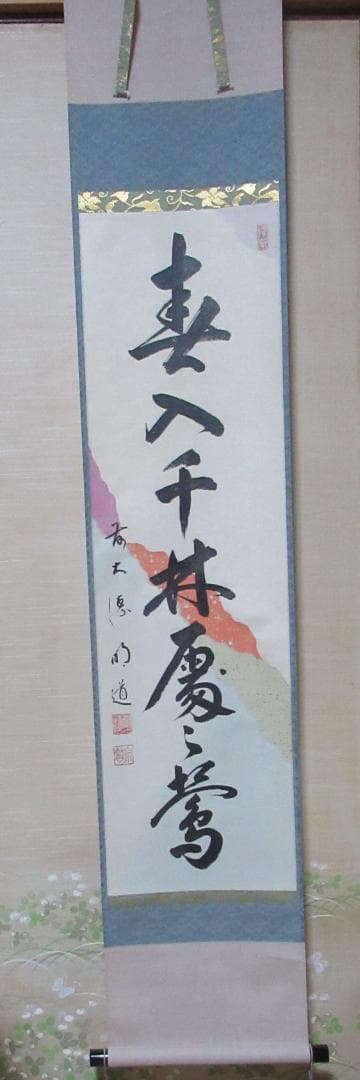 春入千林處々鶯
前大徳明道